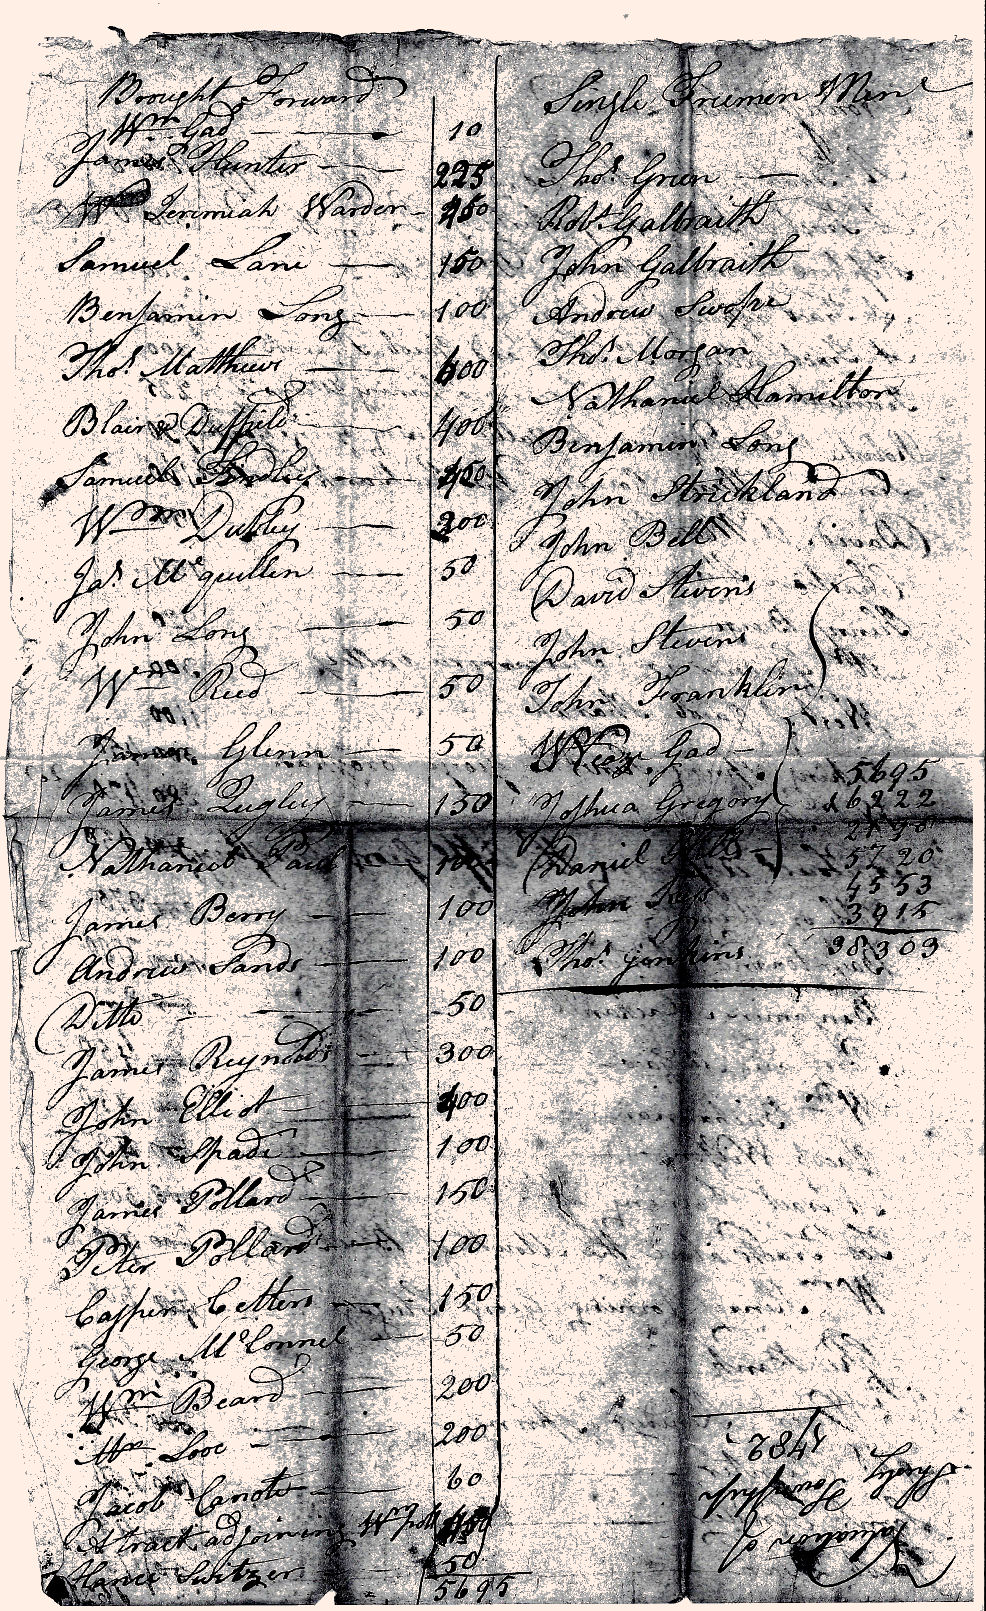 Brought Forward
Wm Gad — 10
James Hunter — 225
Jeremiah Warder — 450
Samuel Lane — 150
Benjamin Long — 100
Thos. Matthews — 600
Blair & Duffield — 400
Samuel Findley — 400
Wm Dubley — 200
Jas. McQuillen — 50
John Long — 50
Wm Reed — 50
James Glenn — 50
James Qugley — 150
Nathaniel — 100
James Berry — 100
Andrew Sands — 100
Ditto — 50
James Reynolds — 300
John Elliot — 400
John Spade — 100
James Pollard — 150
Peter Pollard — 100
Casper Cetters — 150
George McConnel — 50
Wm Beard — 200
Wm Looe — 200
Jacob Canote — 60
A tract adjoining Wm
Hance Switzer 50
5695
Single Freemen Men
Thos. Green —
Robt. Galbraith
John Galbraith
Andrew Swope
Thos. Morgan
Nathaniel Hamilton
Benjamin Long
John Strickland
John Bell
David Stivens
John Stevens
John Franklin
Gad —
Joshua Gregory
Daniel
John
Thos. Jenkins
5695
16222
2198
5720
4553
3915
38303
Valuation of
Township
1782